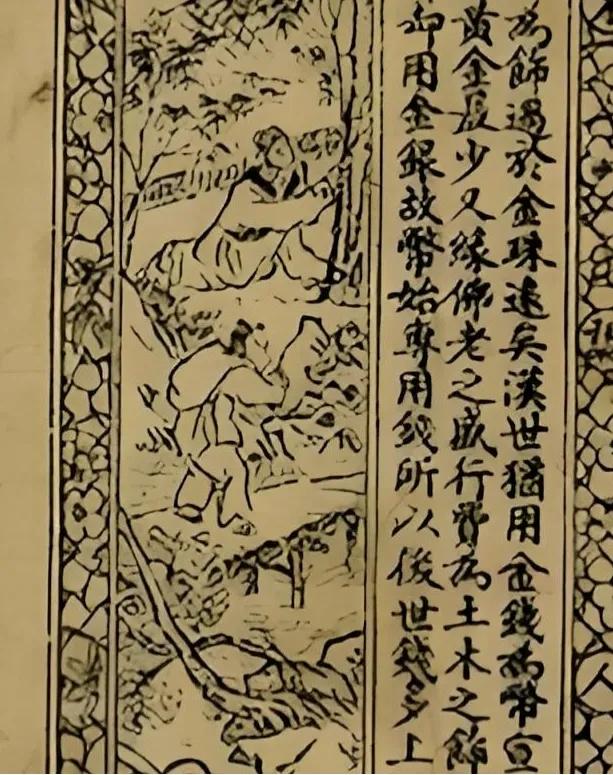 為飾過於金珠遠矣漢世猶用金錢為幣宣
黃金最少又緣佛老之盛行費為土木之飾
却用金銀故幣始專用錢所以後世錢多上